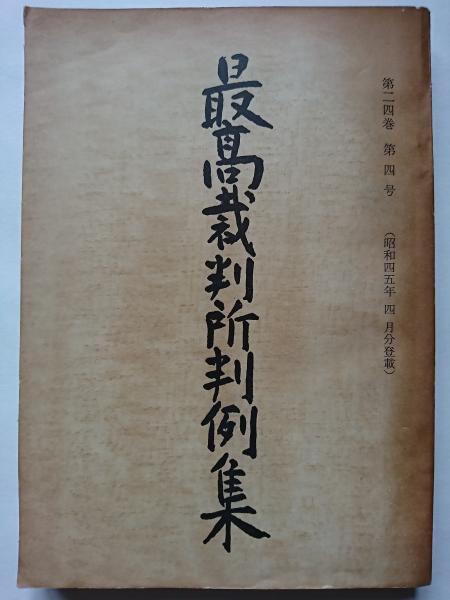 第二四巻 第四号 (昭和四五年四月分登載)
最高裁判所判例集